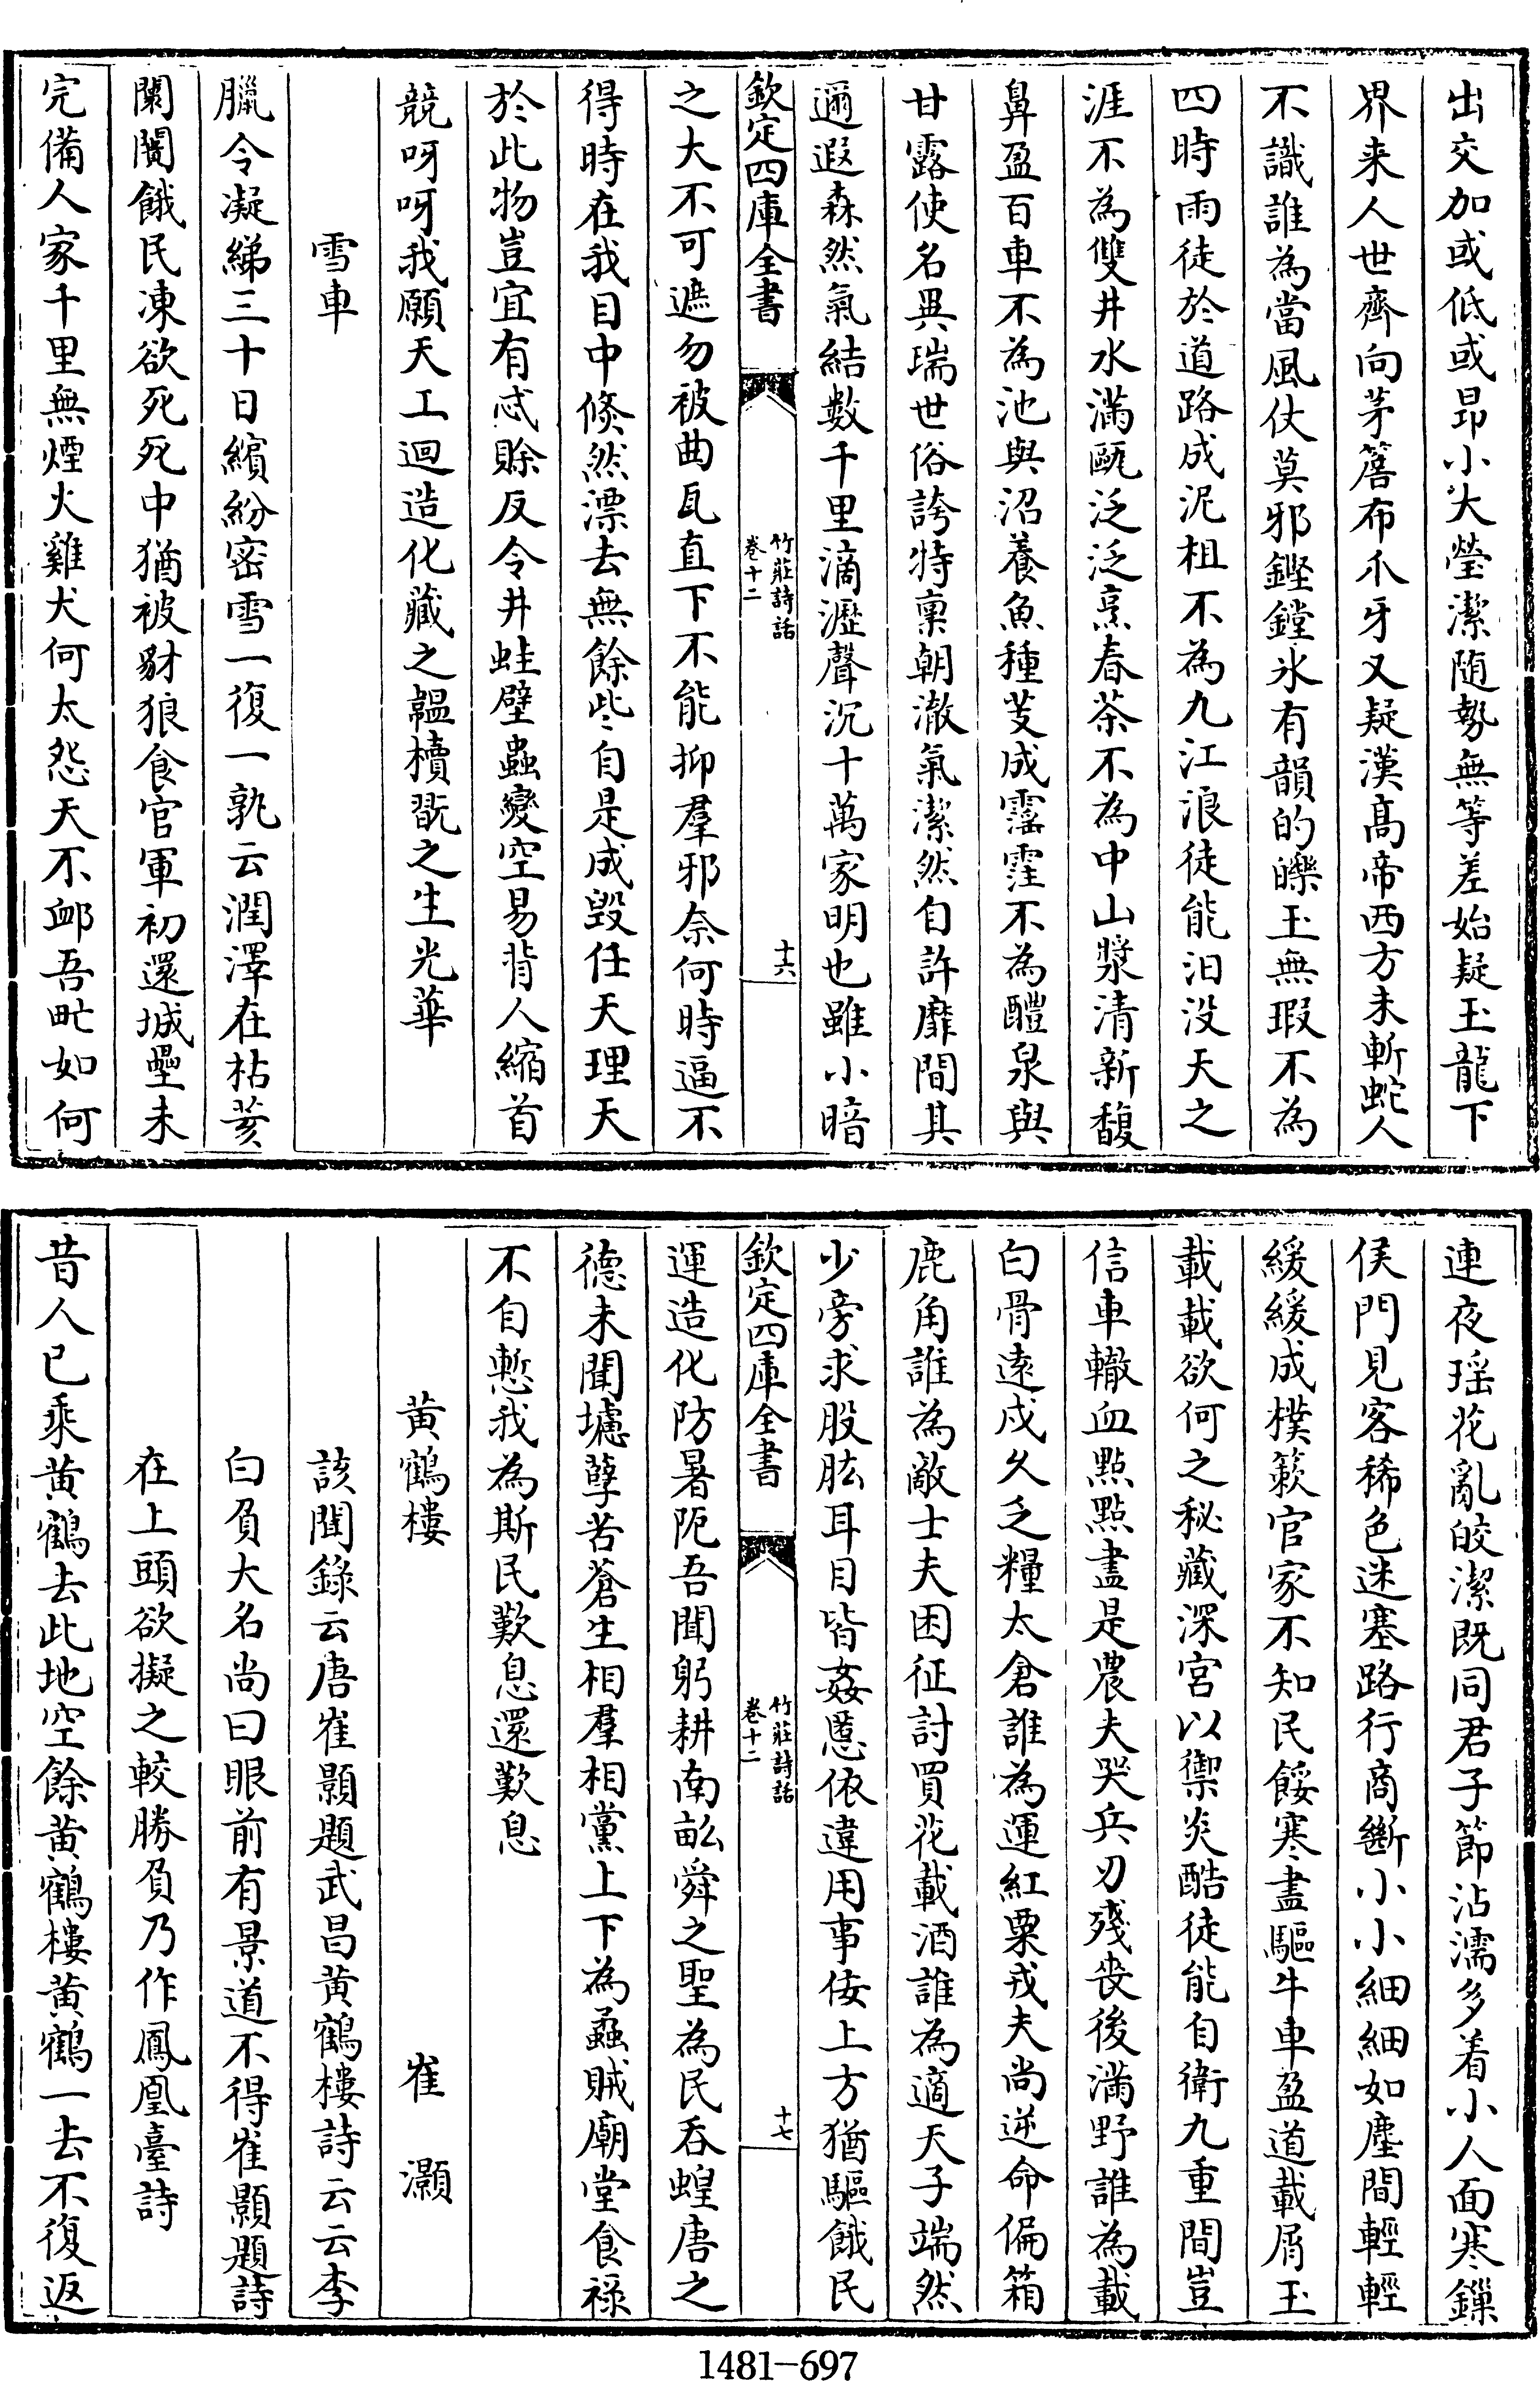 出交加或低或昂小大瑩潔随勢無等差始疑玉龍下
界来人世齊向茅簷布爪牙又疑漢髙帝西方未斬蛇人
不識誰為當風仗莫邪鏗鏜氷有韻的皪玉無瑕不為
四時雨徒於道路成泥柤不為九江浪徒能汨没天之
涯不為雙井水滿甌泛泛烹春茶不為中山漿清新馥
鼻盈百車不為池與沼養魚種芰成霪霪不為醴泉與
甘露使名異瑞世俗誇特稟朝澈氣潔然自許靡間其
邇遐森然氣結數千里滴瀝聲沉十萬家明也雖小暗
欽定四庫全書
竹莊詩話
卷十二
十六
之大不可遮勿被曲瓦直下不能抑羣邪奈何時逼不
得時在我目中倐然漂去無餘些自是成毁任天理天
於此物豈宜有忒賖反令井蛙壁蟲變空易背人縮首
競呀呀我願天工迴造化藏之韞櫝翫之生光華
雪車
臘令凝綈三十日繽紛密雪一復一孰云潤澤在枯荄
闃闤餓民凍欲死死中猶被豺狼食官軍初還城壘未
完備人家千里無煙火雞犬何太怨天不䘏吾甿如何
連夜瑶花亂皎潔既同君子節沾濡多着小人面寒鏁
侯門見客稀色迷塞路行商斷小小細細如塵間輕輕
緩緩成樸簌官家不知民餒寒盡驅牛車盈道載屑玉
載載欲何之秘藏深宮以禦炎酷徒能自衛九重間豈
信車轍血點點盡是農夫哭兵刃殘喪後滿野誰為載
白骨遠戍久乏糧太倉誰為運紅粟戎夫尚逆命偏箱
鹿角誰為敵士夫困征討買花載酒誰為適天子端然
少旁求股肱耳目皆姦慝依違用事佞上方猶驅餓民
欽定四庫全書
竹莊詩話
卷十二
十七
運造化防暑阨吾聞躬耕南畆舜之聖為民呑蝗唐之
德未聞墟孽苦蒼生相羣相黨上下為蟊賊廟堂食禄
不自慙我為斯民歎息還歎息
黄鶴樓　崔灝
該聞錄云唐崔顥題武昌黄鶴樓詩云云李
白負大名尚曰眼前有景道不得崔顥題詩
在上頭欲擬之較勝負乃作鳳凰臺詩
昔人已乘黄鶴去此地空餘黄鶴樓黄鶴一去不復返
1481-697